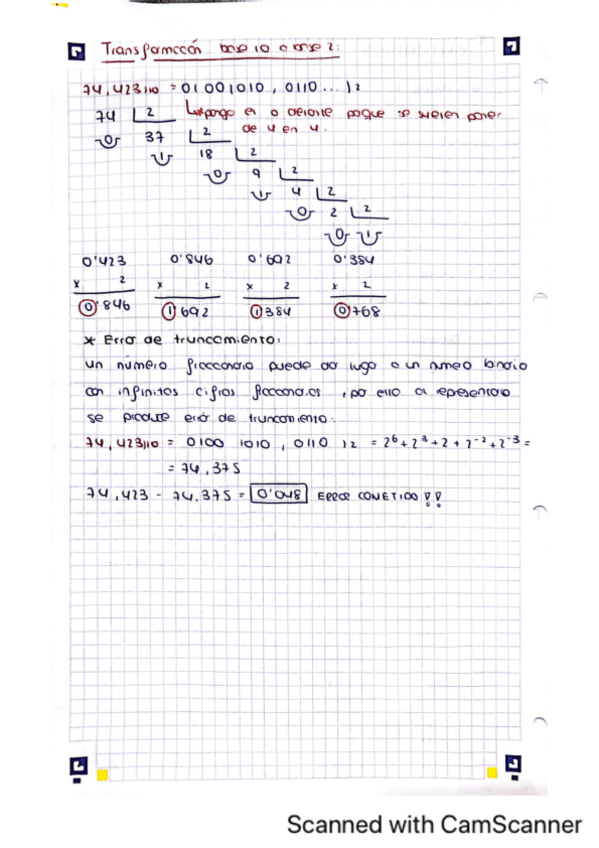 Transformación base 10 a base 2:
74,423)10 = 01001010, 0110...)2
74 |2 Le pongo el 0 delante porque se suelen poner
0 37 |2 de 4 en 4.
1 18 |2
0 9 |2
1 4 |2
0 2 |2
0 1
0'423 0'846 0'692 0'384
x 2 x 2 x 2 x 2
0'846 1'692 1'384 0'768
* Error de truncamiento:
un número fraccionario puede dar lugar a un numero binario
con infinitas cifras fraccionarias, por ello al representarlo
se produce error de truncamiento.
74,423)10 = 0100 1010, 0110 )2 = 2^6 + 2^3 + 2 + 2^-2 + 2^-3 =
= 74,375
74,423 - 74,375 = 0'048 ERROR COMETIDO !!
Scanned with CamScanner